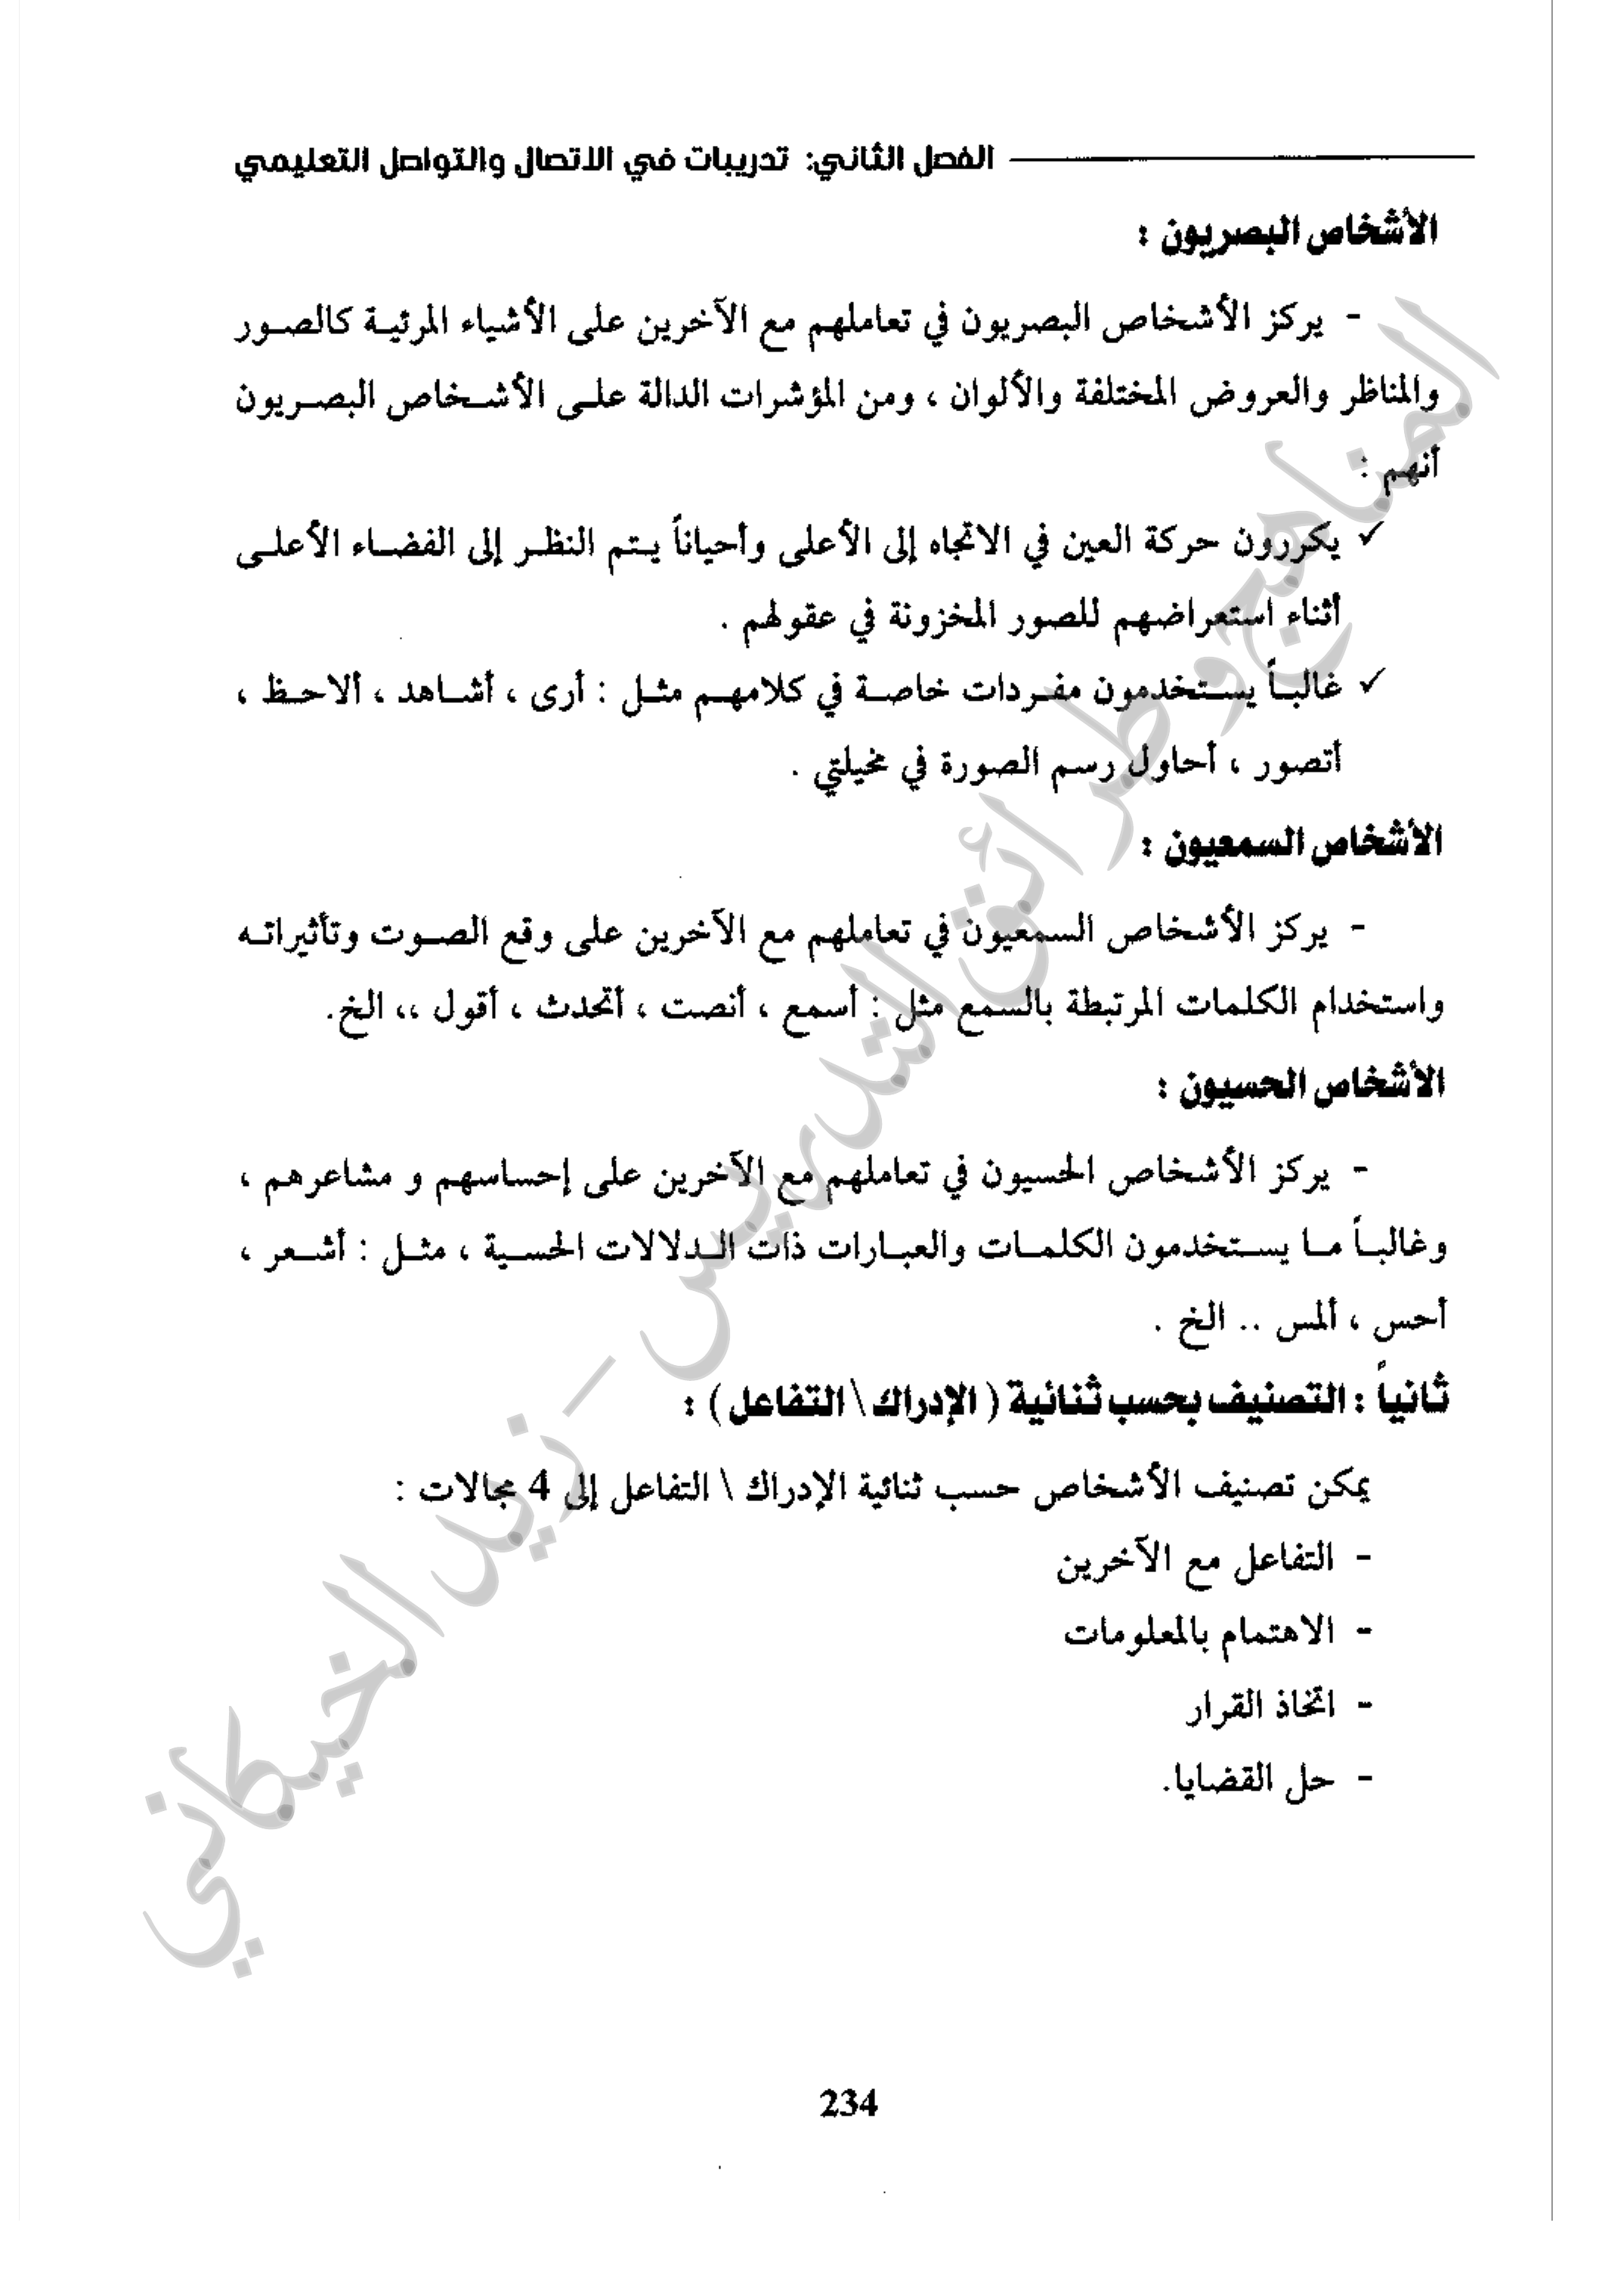 الفصل الثاني: تدريبات في الاتصال والتواصل التعليمي
الأشخاص البصريون :
- يركز الأشخاص البصريون في تعاملهم مع الآخرين على الأشياء المرئية كالصور
والمناظر والعروض المختلفة والألوان ، ومن المؤشرات الدالة على الأشخاص البصريون
أنهم :
✓ يكررون حركة العين في الاتجاه إلى الأعلى وأحياناً يتم النظر إلى الفضاء الأعلى
أثناء استعراضهم للصور المخزونة في عقولهم .
✓ غالباً يستخدمون مفردات خاصة في كلامهم مثل : أرى ، أشاهد ، ألاحظ ،
أتصور ، أحاول رسم الصورة في مخيلتي .
الأشخاص السمعيون :
- يركز الأشخاص السمعيون في تعاملهم مع الآخرين على وقع الصوت وتأثيراته
واستخدام الكلمات المرتبطة بالسمع مثل : أسمع ، أنصت ، أتحدث ، أقول ،، الخ.
الأشخاص الحسيون :
- يركز الأشخاص الحسيون في تعاملهم مع الآخرين على إحساسهم و مشاعرهم ،
وغالباً ما يستخدمون الكلمات والعبارات ذات الدلالات الحسية ، مثل : أشعر ،
أحس ، ألمس .. الخ .
ثانياً : التصنيف بحسب ثنائية ( الإدراك \ التفاعل ) :
يمكن تصنيف الأشخاص حسب ثنائية الإدراك \ التفاعل إلى 4 مجالات :
- التفاعل مع الآخرين
- الاهتمام بالمعلومات
- اتخاذ القرار
- حل القضايا.
المناهج وطرائق التدريس - زيد الخيكاني
234